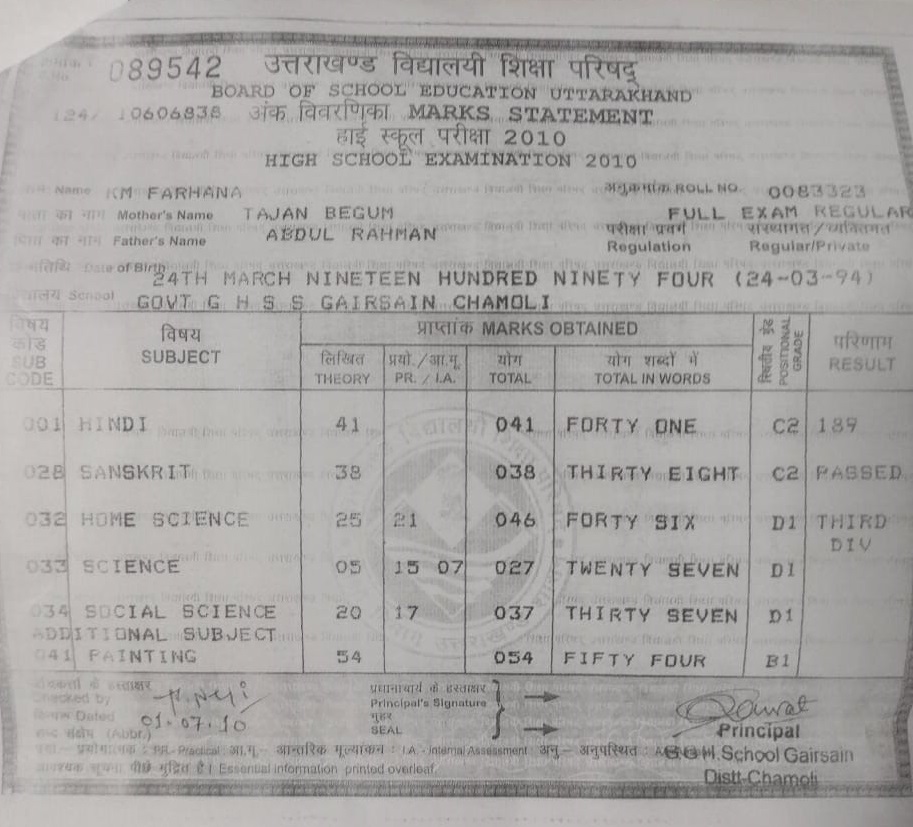 089542 उत्तराखण्ड विद्यालयी शिक्षा परिषद्
BOARD OF SCHOOL EDUCATION UTTARAKHAND
124/ 10606838 अंक विवरणिका MARKS STATEMENT
हाई स्कूल परीक्षा 2010
HIGH SCHOOL EXAMINATION 2010
Name KM FARHANA अनुक्रमांक ROLL NO. 0083323
का नाम Mother's Name TAJAN BEGUM FULL EXAM REGULAR
का नाम Father's Name ABDUL RAHMAN परीक्षा प्रवर्ग संस्थागत/व्यक्तिगत
Regulation Regular/Private
Date of Birth 24TH MARCH NINETEEN HUNDRED NINETY FOUR (24-03-94)
School GOVT G H S S GAIRSAIN CHAMOLI
विषय कोड SUB CODE विषय SUBJECT प्राप्तांक MARKS OBTAINED POSITIONAL GRADE परिणाम RESULT
लिखित THEORY प्रयो./आ.मू. PR. / I.A. योग TOTAL योग शब्दों में TOTAL IN WORDS
001 HINDI 41 041 FORTY ONE C2 189
028 SANSKRIT 38 038 THIRTY EIGHT C2 PASSED
032 HOME SCIENCE 25 21 046 FORTY SIX D1 THIRD
DIV
033 SCIENCE 05 15 07 027 TWENTY SEVEN D1
034 SOCIAL SCIENCE 20 17 037 THIRTY SEVEN D1
ADDITIONAL SUBJECT
041 PAINTING 54 054 FIFTY FOUR B1
के हस्ताक्षर प्रधानाचार्य के हस्ताक्षर
Checked by Principal's Signature
Dated 01.07.10 मुहर
(Abbr.) SEAL Principal
PR.- Practical आ.मू.- आन्तरिक मूल्यांकन : I.A. - Internal Assessment अनु.- अनुपस्थित : School Gairsain
आवश्यक सूचना पीछे मुद्रित है। Essential information printed overleaf. Distt-Chamoli